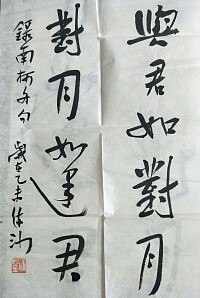 與君如對月
對月如逢君
錄南柯子句 歲在乙未